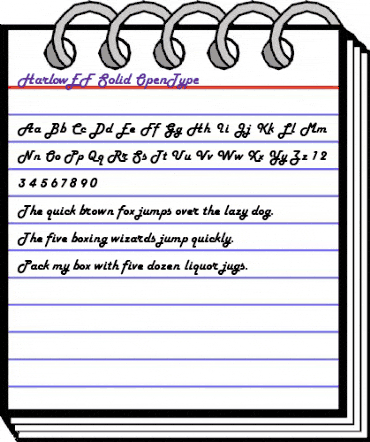 HarlowEF Solid OpenType
Aa Bb Cc Dd Ee Ff Gg Hh Ii Jj Kk Ll Mm
Nn Oo Pp Qq Rr Ss Tt Uu Vv Ww Xx Yy Zz 1 2
3 4 5 6 7 8 9 0
The quick brown fox jumps over the lazy dog.
The five boxing wizards jump quickly.
Pack my box with five dozen liquor jugs.